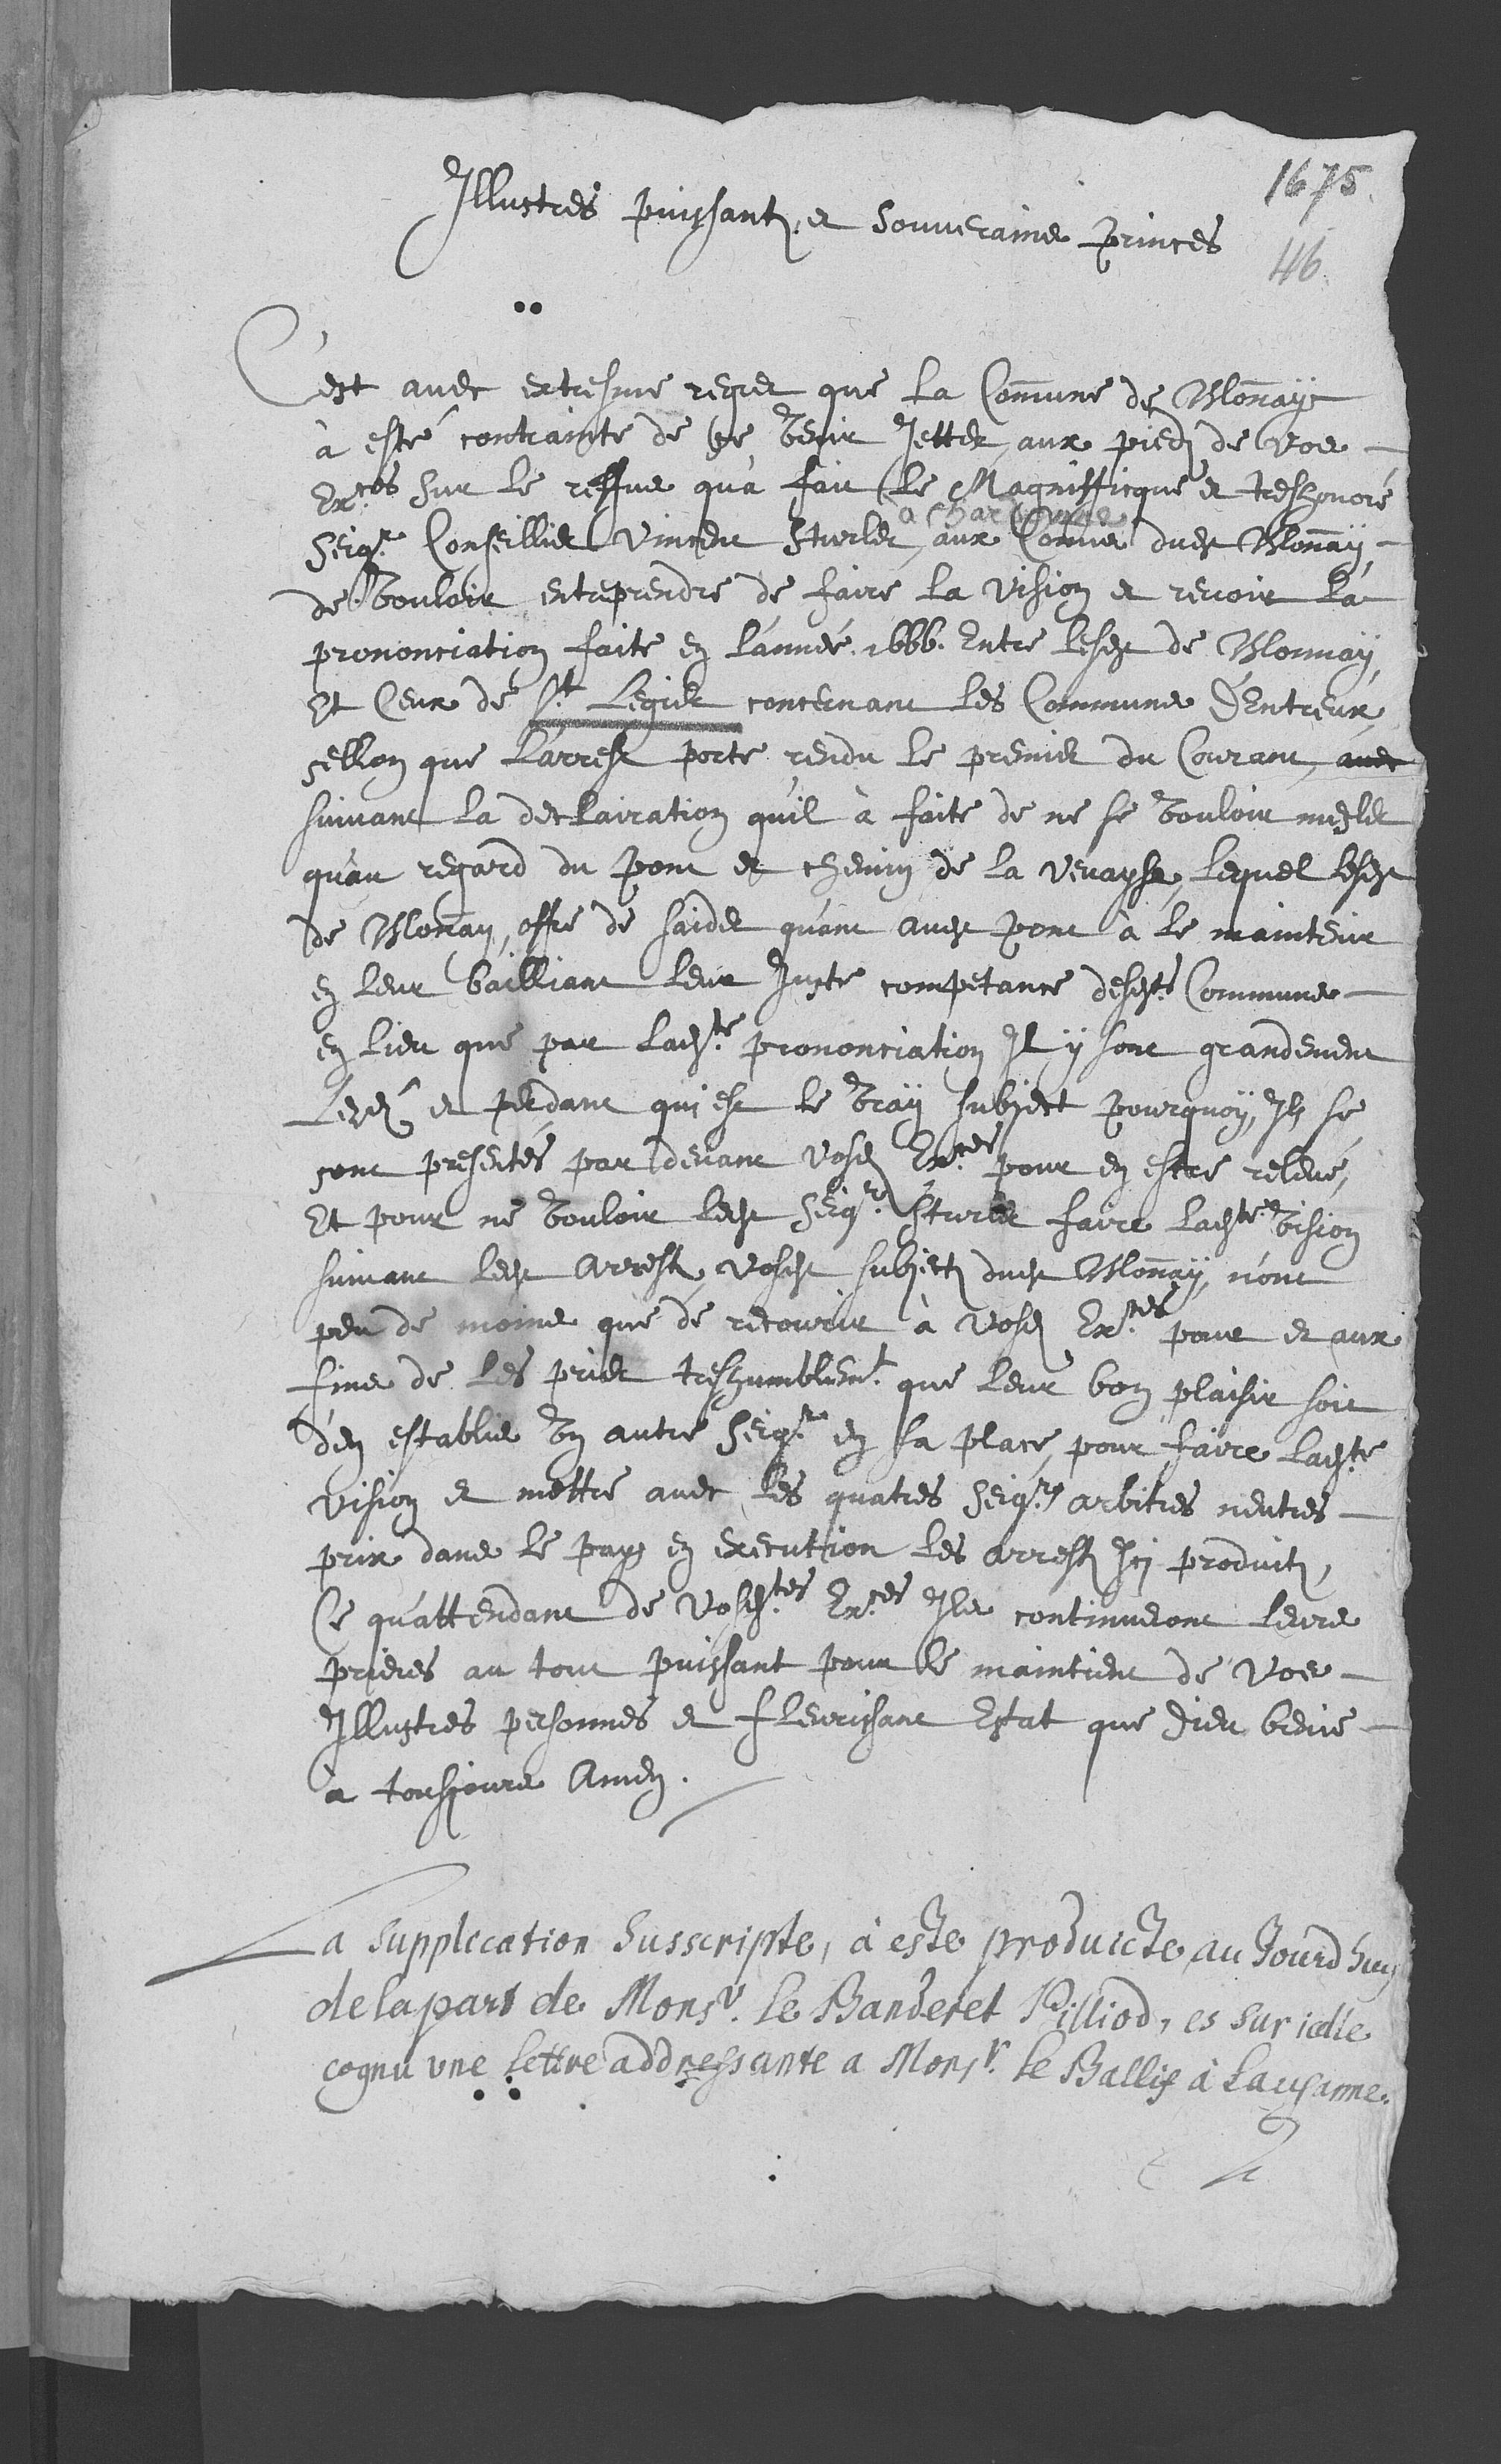 1675.
Illustres puissants et souverains princes
46
C'est avec extresme regret que la Commune de Blonnay
à esté contrainte de se venir Jetter aux pieds de vos
Ex.ces sur le reffus qu'a fait le Magnifficque et treshonoré
à Chardonne
Seigr. Conseillier Vincent Sturler, aux Commis dudt Blonnaÿ
de vouloir entreprendre de faire la vision et revoir la
prononciation faite en l'année 1666. Entre lesdt de Blonnaÿ
Et Ceux de St. Legier concernant les Communs d'Entreux,
sellon que l'arrest porte rendu le premier du Courant, avec
suivant la declairation qu'il à faite de ne se vouloir mesler
qu'au regard du pont et chemin de la Veraÿse, lequel lesdt
de Blonnaÿ, offre de s'aider quant audt pont à le maintenir
en leur bailliant leur Juste competance desdts Communs
en lieu que par ladte prononciation Il ÿ sont grandement
Lezés et perdant qui est le vraÿ subject pourquoÿ, Ils se
sont presentés par devant vosd Ex.ces pour en estre relevé,
Et pour ne vouloir ledt Seigr. Sturler faire ladte vision
suivant ledt arrest, vosdt subjects dudt Blonnaÿ, n'ont
peu de moins que de recourir à vosd Ex.ces pour et aux
fins de les prier treshumblemt. que leur bon plaisir soit
d'en establir un autre Seigr. en sa place, pour faire ladte
vision et mettre avec les quatres Seigrs arbitres neutres
prix dans le pays en execution les arrests Ici produits,
Ce qu'attendant de vosdtes Ex.ces Ils continueront leurs
prieres au tout puissant pour le maintient de vos
Illustres personnes et fleurissant Estat que Dieu benie
à tousjours Amen.
La supplication susscripte, à esté produicte au Jourd huy
de la part de Monsr. le Banderet Pilliod, et sur icelle
cognu une lettre addressante a Monsr. le Ballif à Lausanne.